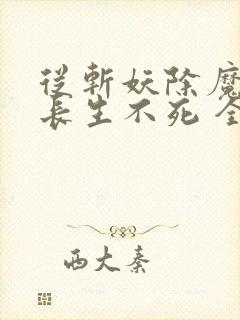 從斬妖除魔
長生不死 全
西大秦